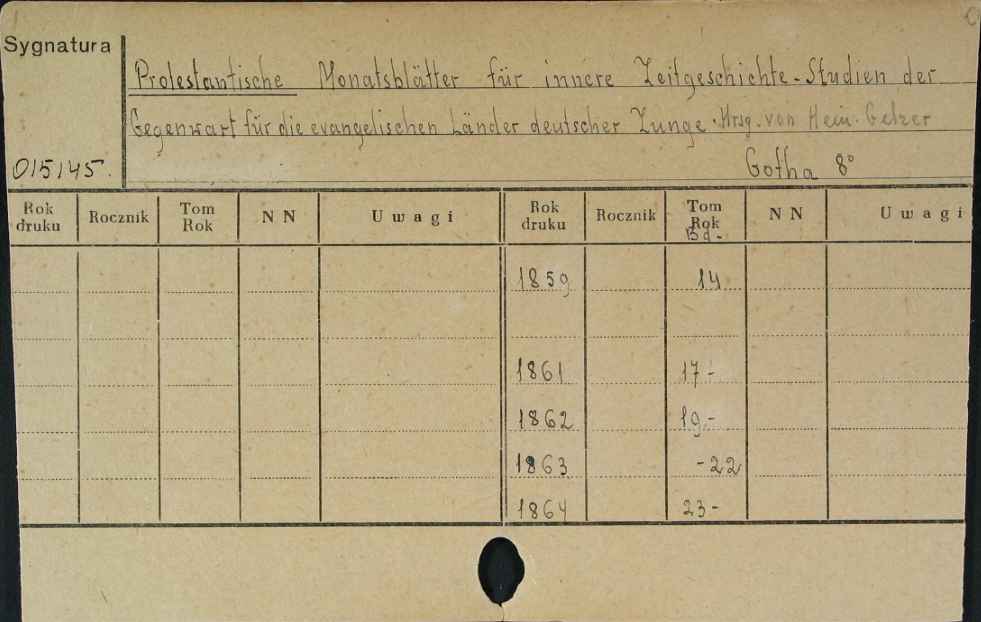 Sygnatura
Protestantische Monatsblätter für innere Zeitgeschichte - Studien der
Gegenwart für die evangelischen Länder deutscher Zunge. Hrsg. von Hein. Gelzer
015145. Gotha 8°
Rok druku Rocznik Tom Rok NN Uwagi Rok druku Rocznik Tom Rok NN Uwagi
Bd.-
1859 14
1861 17-
1862 19-
1863 -22
1864 23-